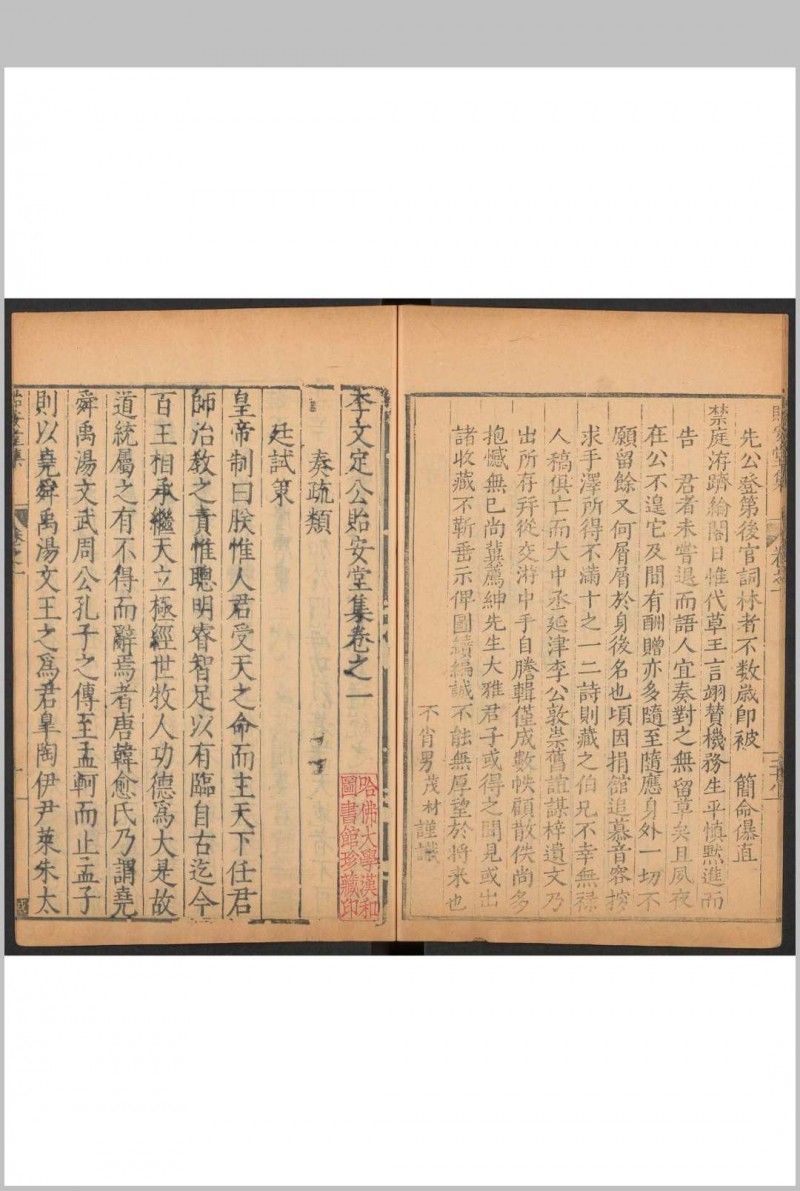 先公登第後官詞林者不数歲即被　簡命儤直
禁庭洊躋綸閣日惟代草王言翊賛機務生平慎黙進而
告　君者未嘗退而語人宜奏對之無留草矣且夙夜
在公不遑它及間有酬贈亦多隨至隨應身外一切不
願留餘又何屑屑於身後名也頃因捐館追慕音容搜
求手澤所得不滿十之一二詩則藏之伯兄不幸無祿
人稿俱亡而大中丞延津李公敦崇舊誼謀梓遺文乃
出所存幷從交游中手自謄輯僅成數帙顧散佚尚多
抱憾無已尚冀薦紳先生大雅君子或得之聞見或出
諸收藏不靳垂示俾圖續編誠不能無厚望於將来也
不肖男茂材謹識
李文定公貽安堂集卷之一
奏疏類
廷試策
皇帝制曰朕惟人君受天之命而主天下任君
師治敎之責惟聰明睿智足以有臨自古迄今
百王相承繼天立極經世牧人功德爲大是故
道統屬之有不得而辭焉者唐韓愈氏乃謂堯
舜禹湯文武周公孔子之傳至孟軻而止孟子
則以堯舜禹湯文王之爲君臯陶伊尹萊朱太
哈佛大學漢和
圖書館珍藏印